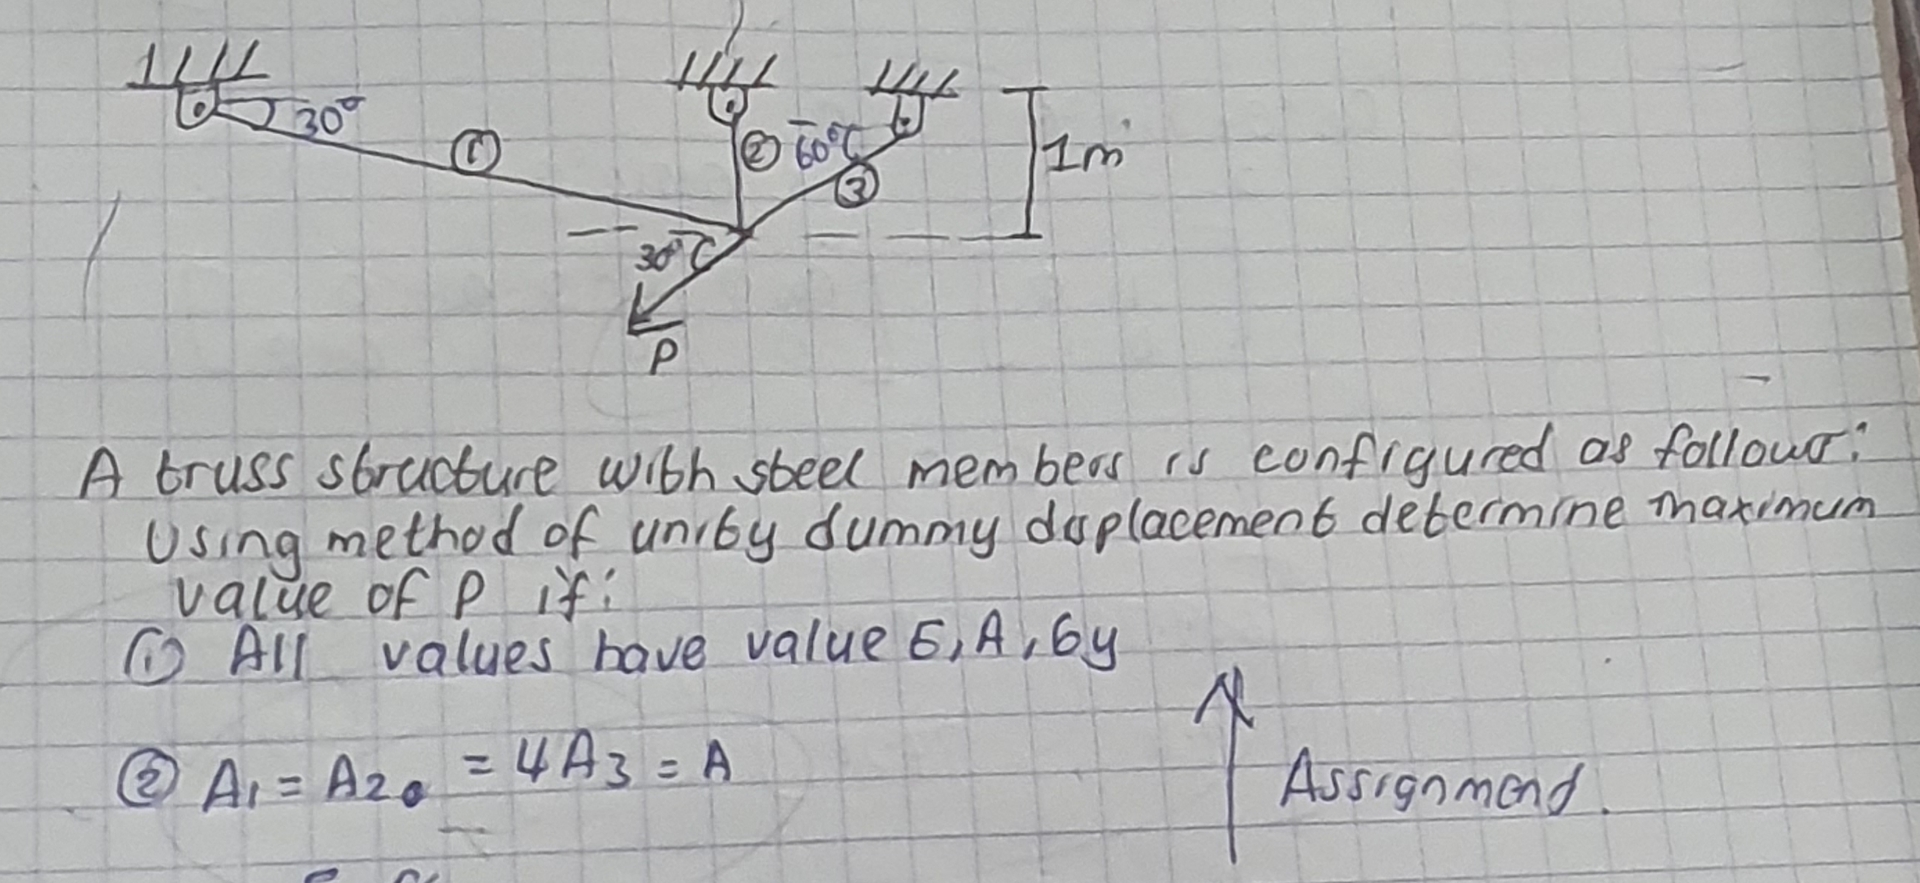 30°
①
②
60°
③
1m
30°
P
A truss structure with steel members is configured as follows:
Using method of unity dummy displacement determine maximum
value of P if:
(1) All values have value E, A, 6y
② A1 = A2 = 4A3 = A
Assignment.